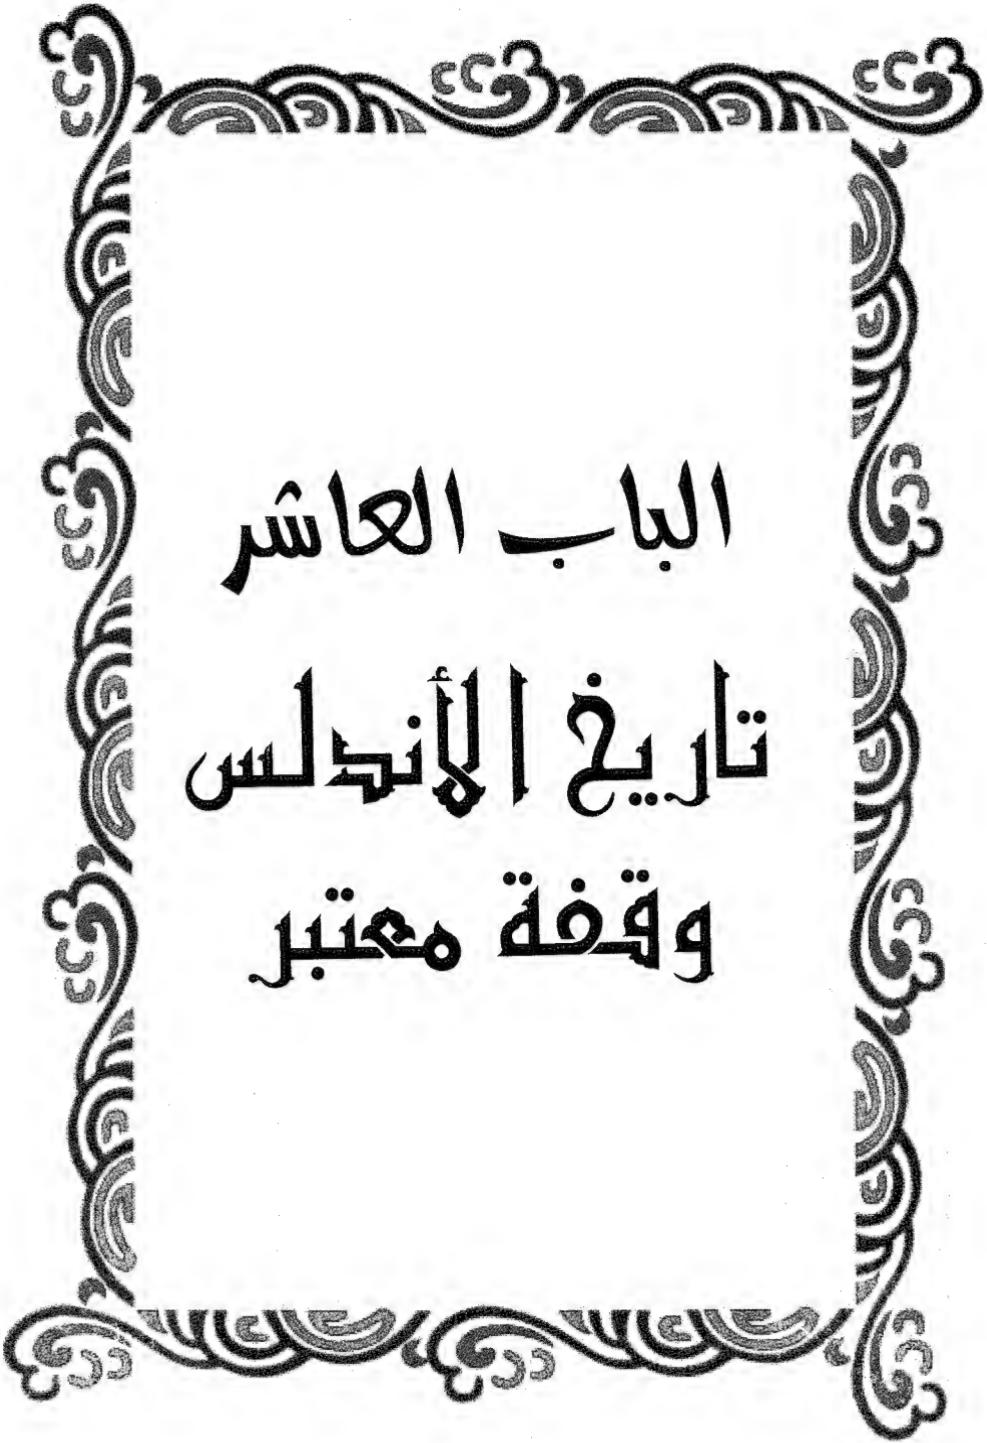 الباب العاشر
تاريخ الأندلس
وقفة معتبر